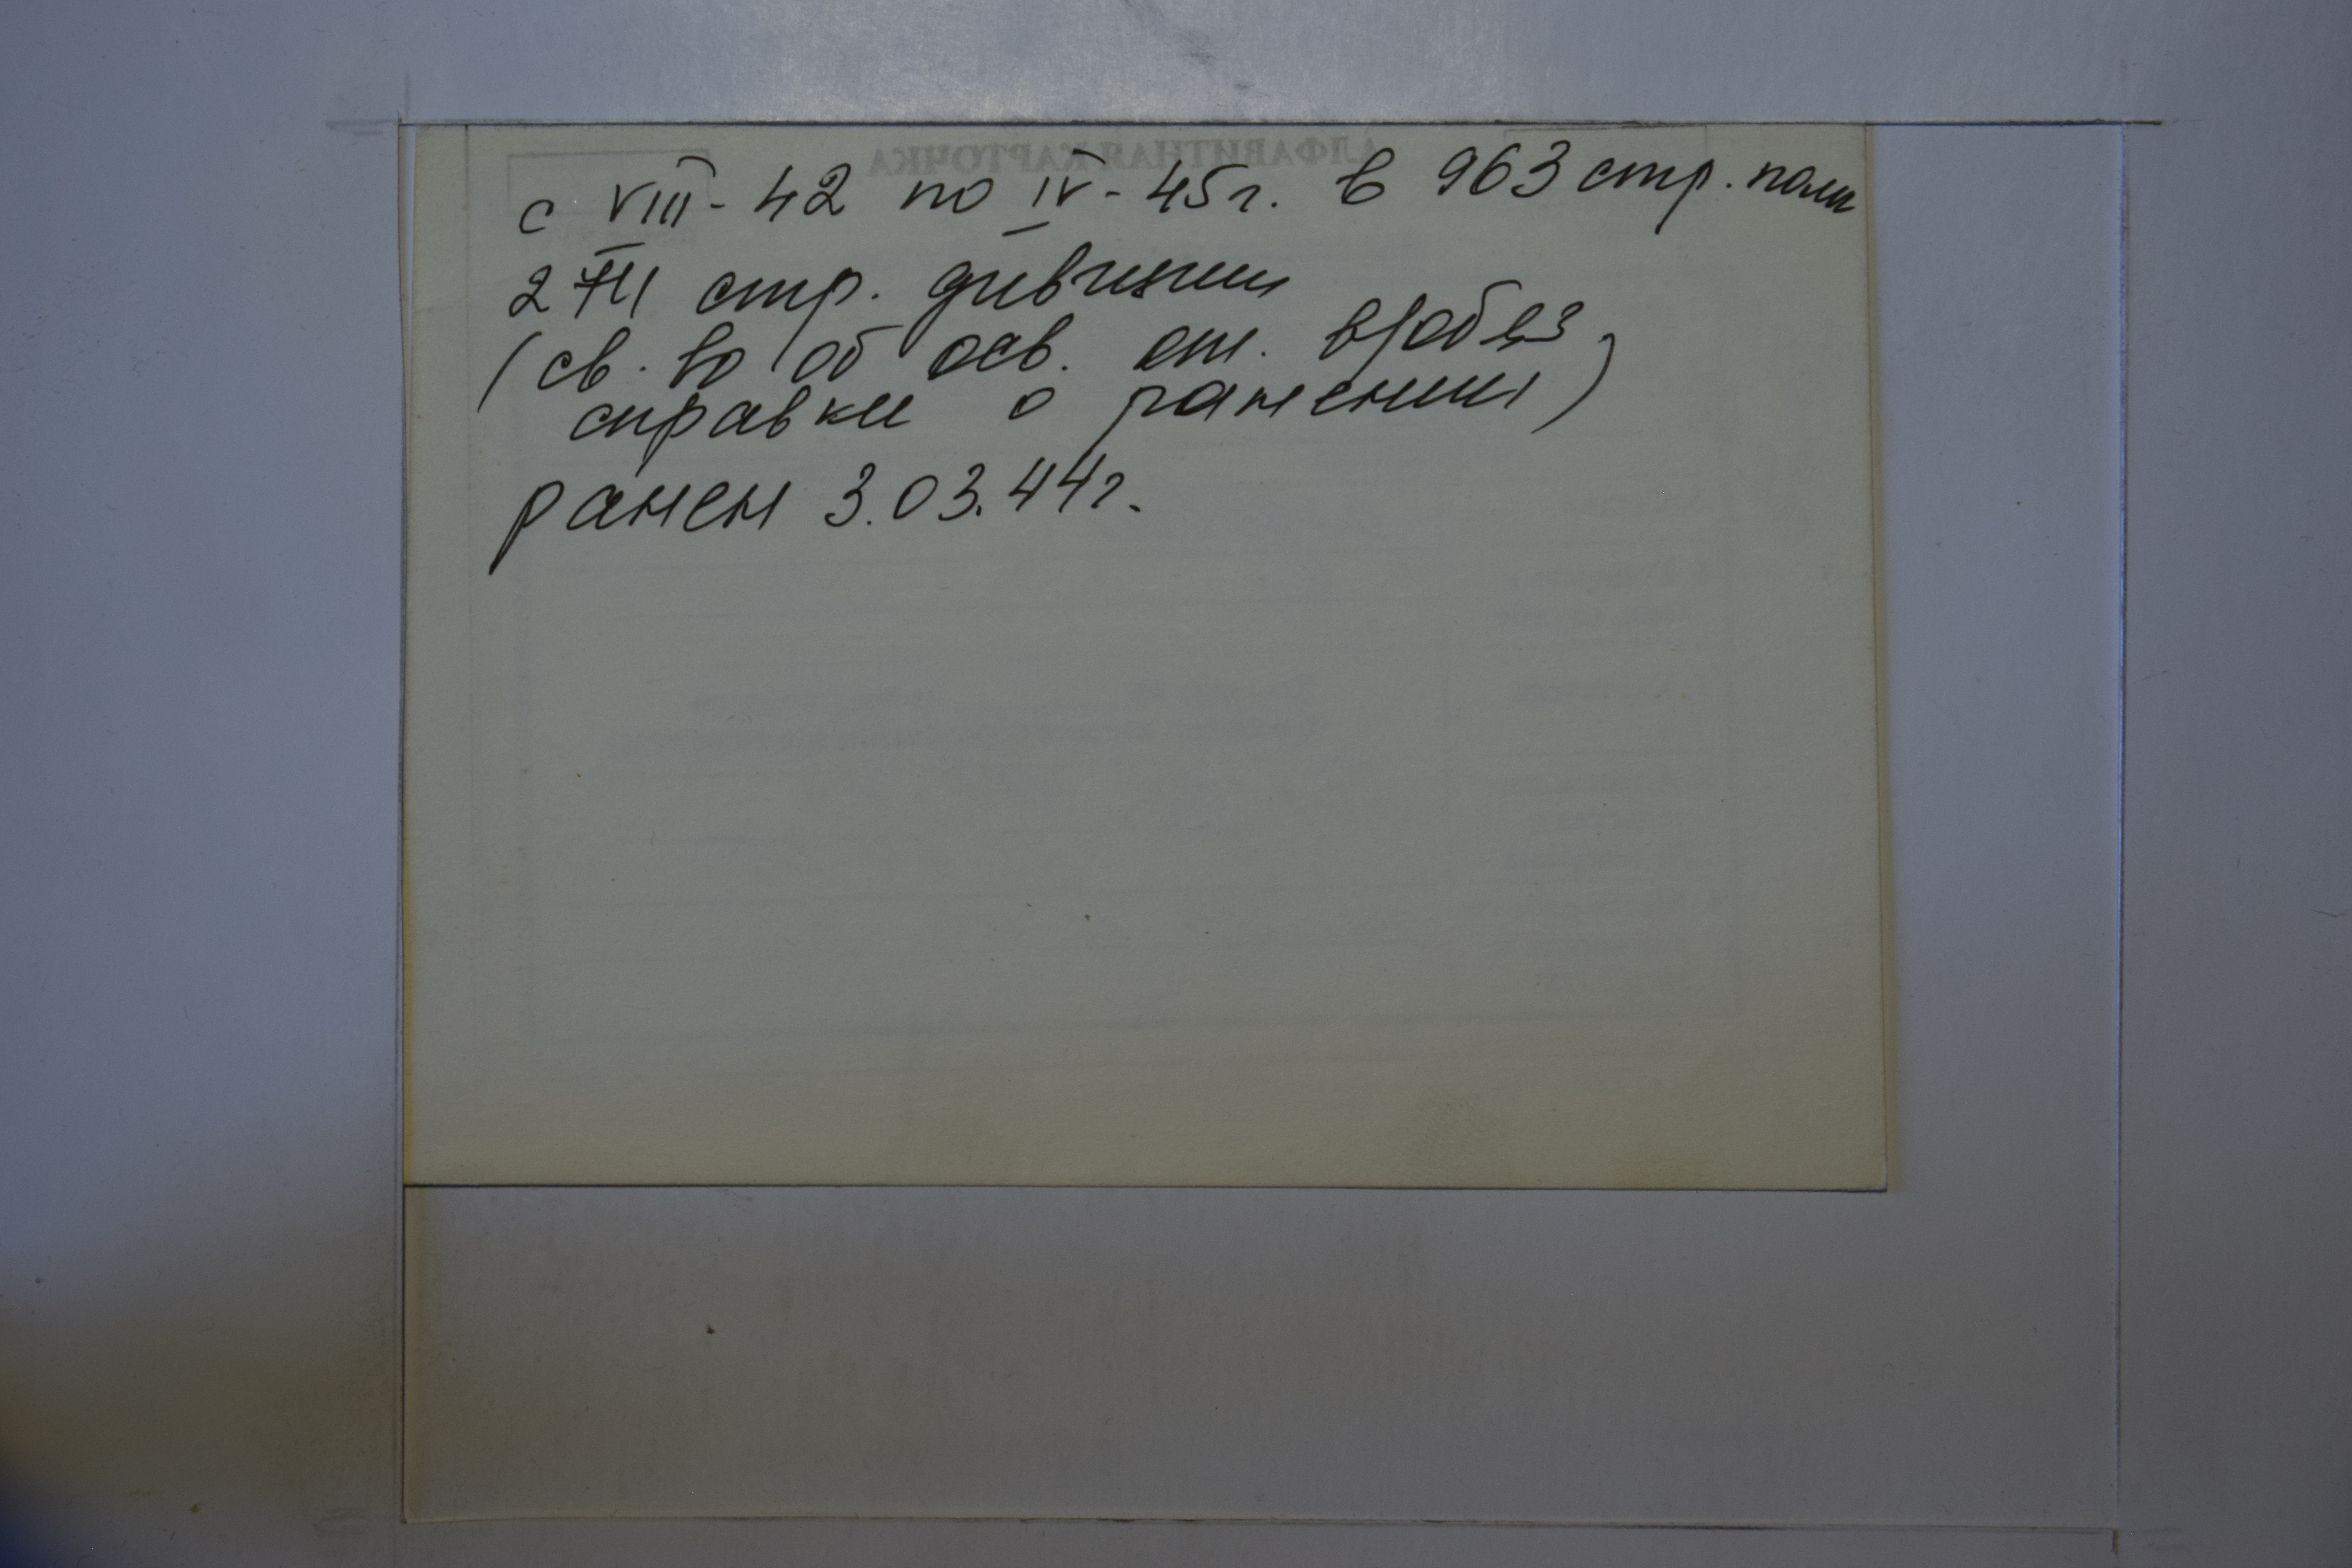 АЛФАВИТНАЯ КАРТОЧКА
с VIII - 42 по IV - 45г. в 963 стр. полк
стр. дивизии
(св. во об осв. от. в/обяз,
справки о ранении)
ранен 3.03.44г.